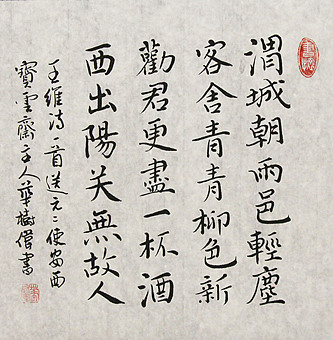 渭城朝雨邑輕塵
客舍青青柳色新
勸君更盡一杯酒
西出陽关無故人
王維诗一首送元二使安西
寶雲齋主人華樹僧書